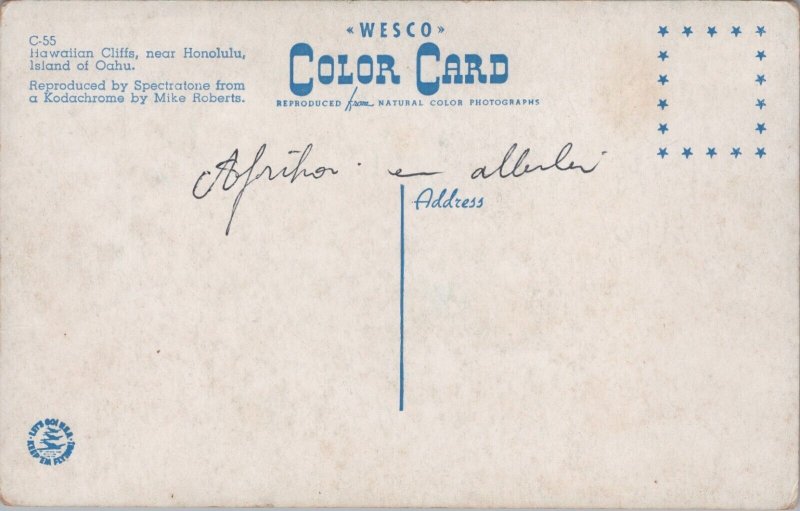 C-55
Hawaiian Cliffs, near Honolulu,
Island of Oahu.
Reproduced by Spectratone from
a Kodachrome by Mike Roberts.
«WESCO»
COLOR CARD
REPRODUCED from NATURAL COLOR PHOTOGRAPHS
Afrika en allerlei
Address
LET'S GO! U.S.A.
KEEP 'EM FLYING!